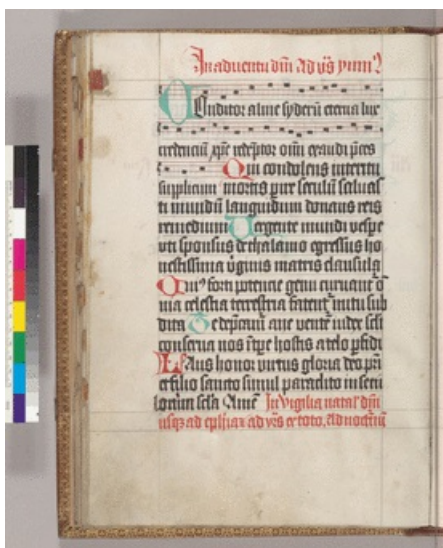 In aduentu dñi ad vs̄ ymnꝰ
Onditor alme syderū eterna lux
credenciū xp̄e redeptor oīm exaudi p̄ces
Qui condolens interitu
supplicum mortis pire seculū saluas
ti mundū languidum donans reis
remedium Uergente mundi vespe
vti sponsus de thalamo egressus ho
nestissima v̓ginis matris clausula
Cuiꝰ forti potencie genu curuant̄ o
nia celestia terrestria fatent̄ nutu sub
dita Te dep̄cam̄ aie ventē iudex scl̄i
conserua nos ī tp̄e hostis a telo p̄fidi
Laus honor virtus gloria deo pr̄i
et filio sancto simul paraclito in secu
lorum scl̄a Amē In Vigilia natał dn̄i
usqꝫ ad ep̄hiaꝫ ad vr̄s et toto. ad nocturnū